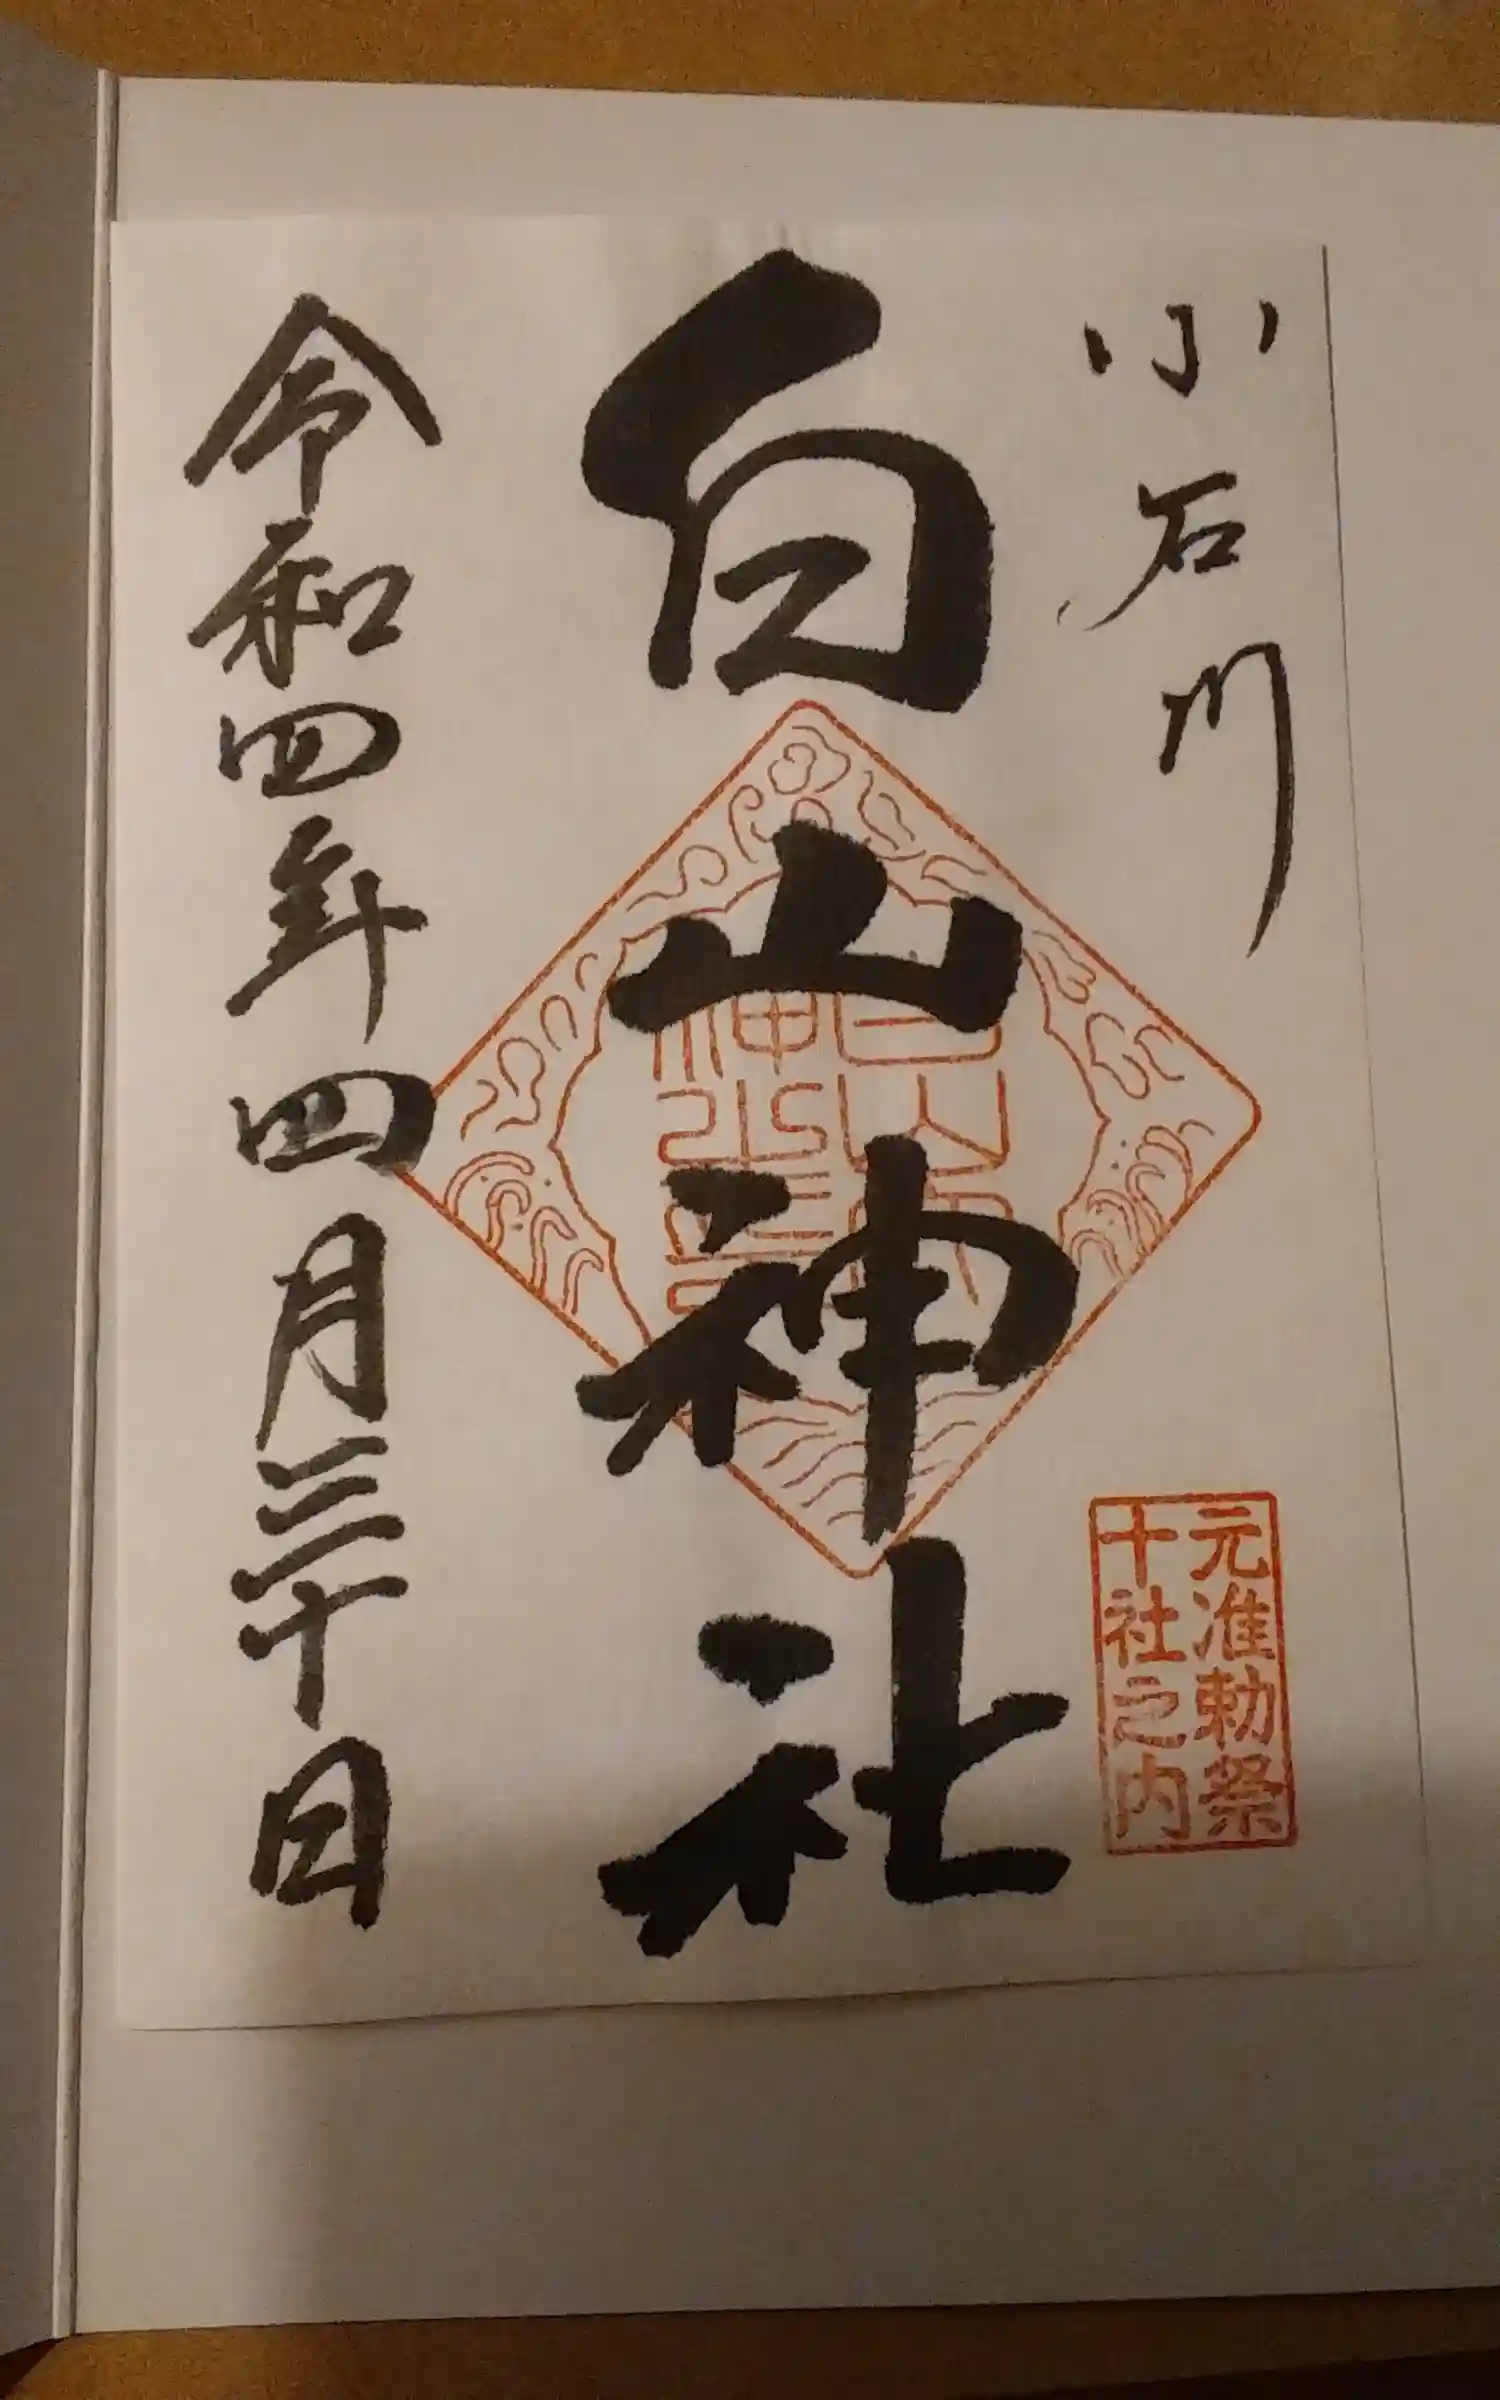 小石川
元准勅祭
十社之内
白山神社
令和四年四月三十日